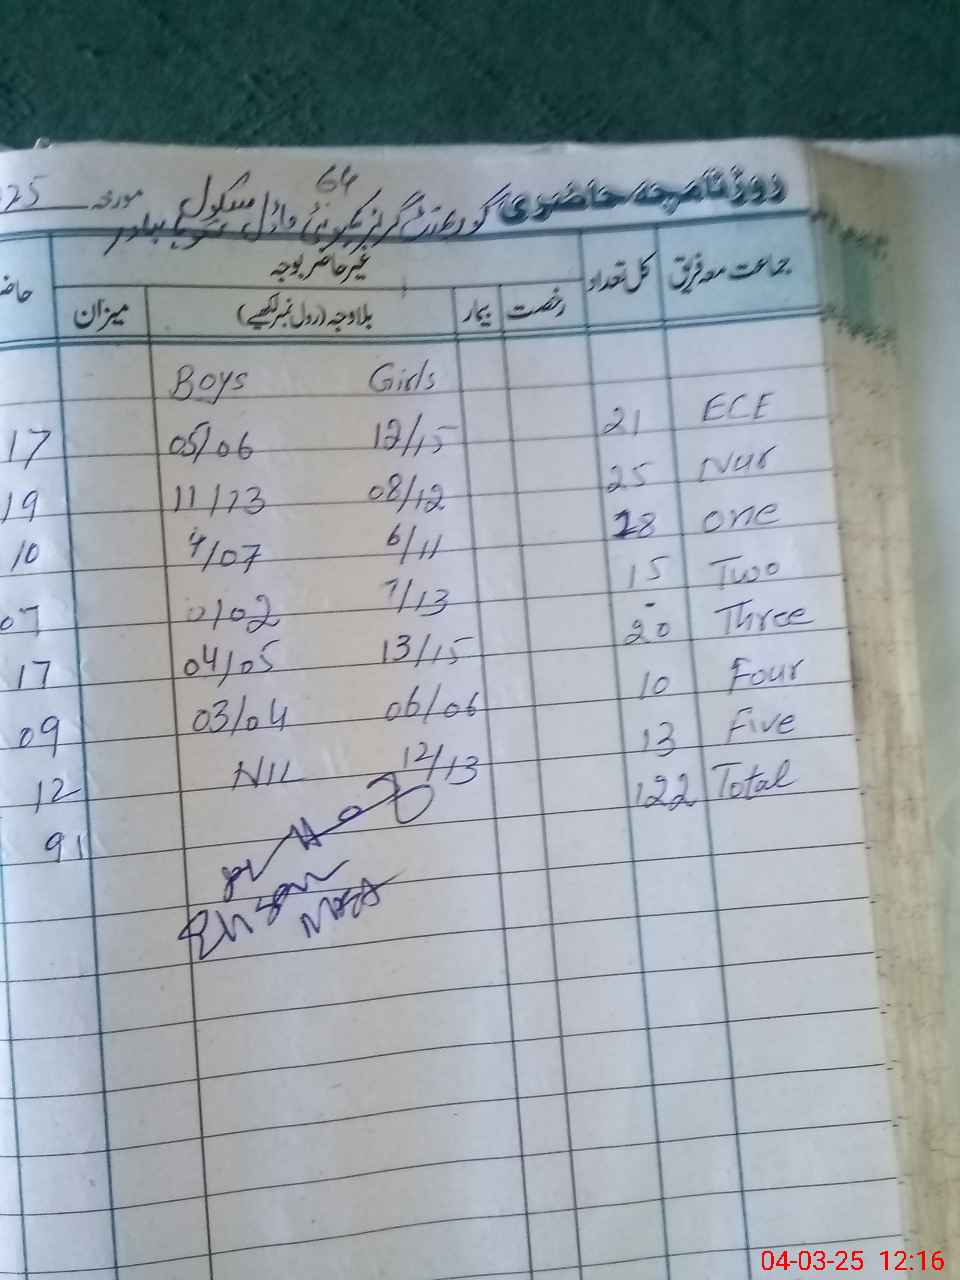 روزنامچہ حاضری گورنمنٹ گرلز کمیونٹی ماڈل سکول 64 مورخہ 25
جماعت معہ فریق کل تعداد غیر حاضر بوجہ
رخصت بیمار بلاوجہ (رول نمبر لکھیے) میزان
Girls Boys
ECE 21 12/15 05/06 17
Nur 25 08/12 11/13 19
one 18 6/11 4/07 10
Two 15 7/13 0/02 07
Three 20 13/15 04/05 17
Four 10 06/06 03/04 09
Five 13 12/13 NIL 12
Total 122 91
04-03-25 12:16